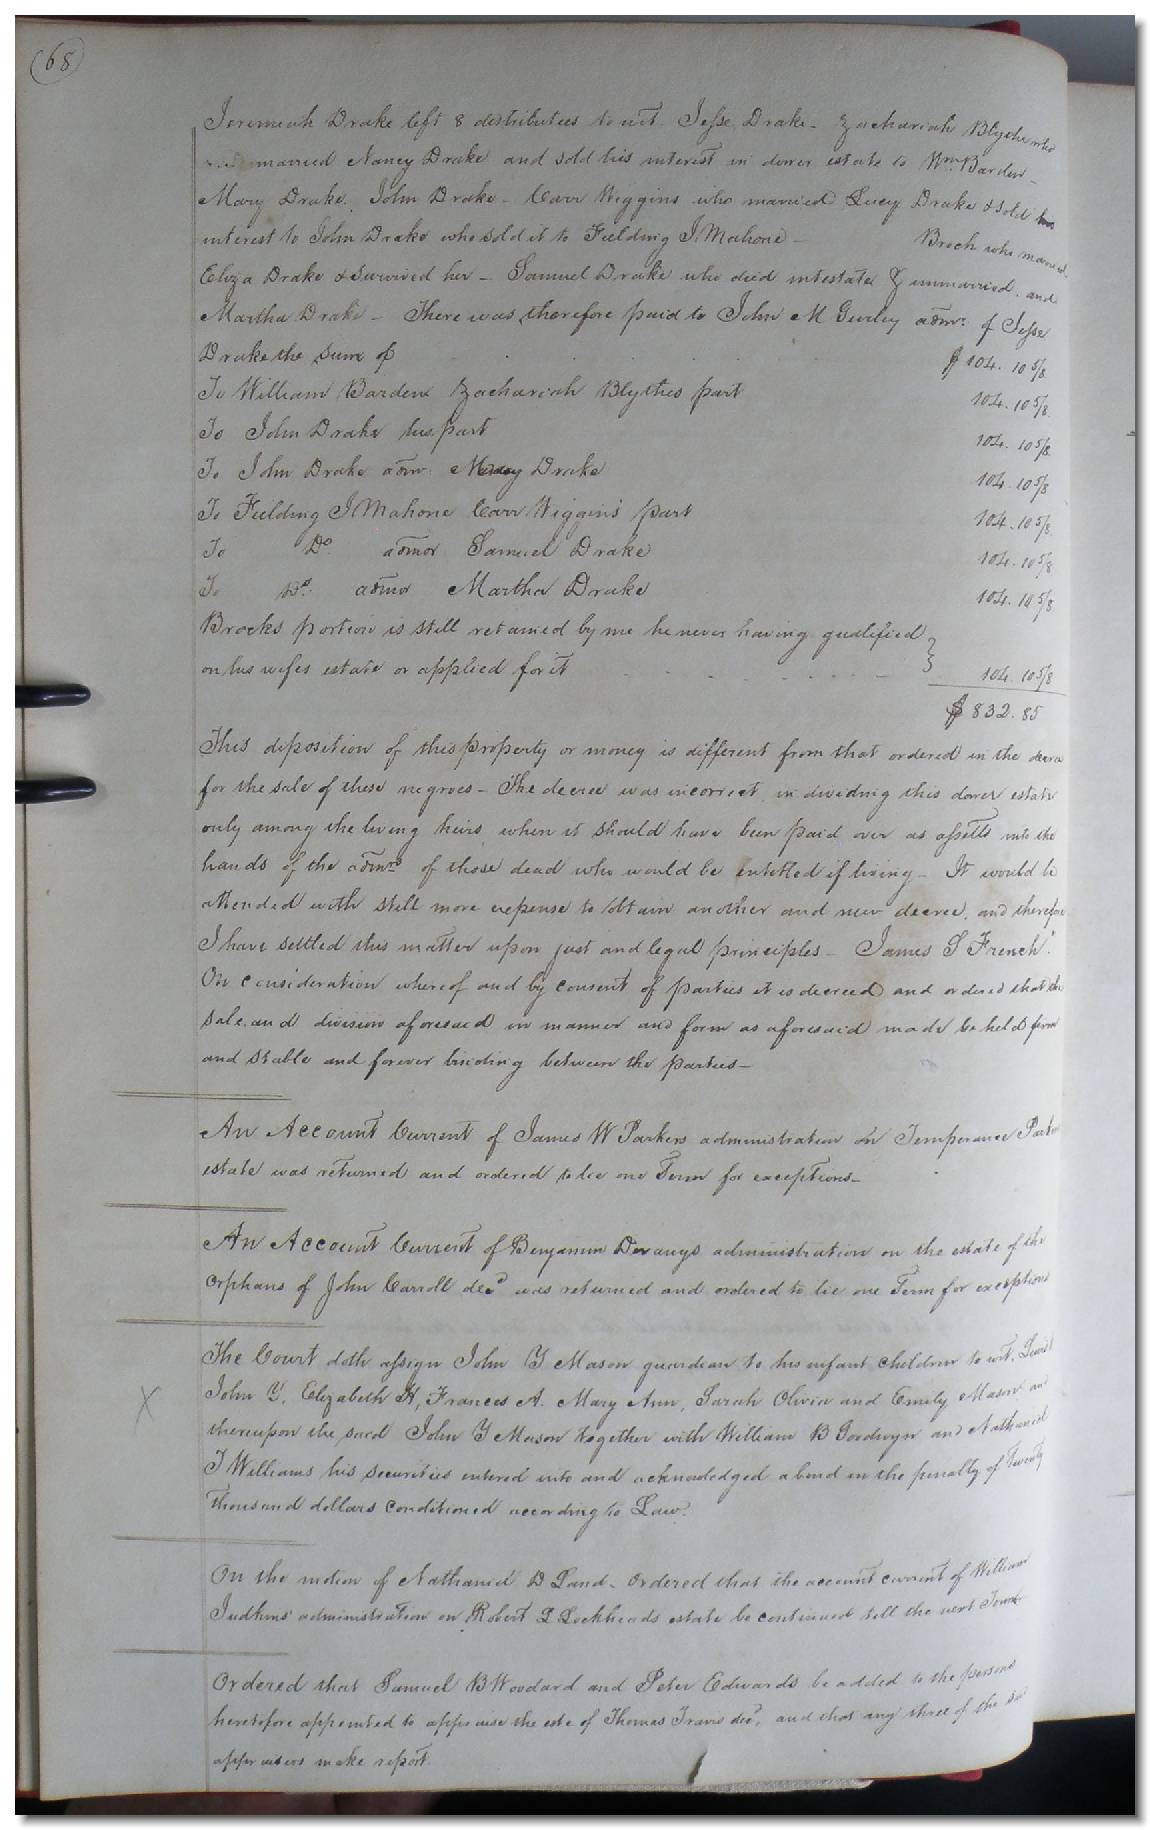 (68)
Jeremiah Drake left 8 distributees to wit. Jesse Drake - Zachariah Blythe who
married Nancy Drake and sold his interest in dower estate to Wm. Barden -
Mary Drake. John Drake - Carr Wiggins who married Lucy Drake & sold his
interest to John Drake who sold it to Fielding J Mahone - Broch who married
Eliza Drake & survived her - Samuel Drake who died intestate & unmarried. and
Martha Drake - There was therefore paid to John M Gurley admr. of Jesse
Drake the sum of $ 104. 10 5/8
To William Barden Zachariah Blythes part 104. 10 5/8
To John Drake his part 104. 10 5/8
To John Drake admr. Mary Drake 104. 10 5/8
To Fielding J Mahone Carr Wiggins part 104. 10 5/8
To Do. admor Samuel Drake 104. 10 5/8
To Do. admor Martha Drake 104. 10 5/8
Brocks portion is still retained by me he never having qualified
on his wifes estate or applied for it 104. 10 5/8
$ 832. 85
This disposition of this property or money is different from that ordered in the decree
for the sale of these negroes - The decree was incorrect in dividing this dower estate
only among the living heirs when it should have been paid over as assetts into the
hands of the admrs of those dead who would be entitled if living - It would be
attended with still more expense to obtain another and new decree, and therefore
I have settled this matter upon just and legal principles - James S French."
On consideration whereof and by consent of parties it is decreed and ordered that the
sale and division aforesaid in manner and form as aforesaid made be held firm
and stable and forever binding between the parties -
An Account Current of James W Parkers administration on Temperance Parkers
estate was returned and ordered to lie one Term for exceptions -
An Account Current of Benjamin Devanys administration on the estate of the
orphans of John Carroll decd was returned and ordered to lie one Term for exceptions
The Court doth assign John Y Mason guardian to his infant children to wit, Lewis
John Y, Elizabeth H, Frances A. Mary Ann, Sarah Olivia and Emily Mason and
X
thereupon the said John Y Mason together with William B Goodwyn and Nathaniel
T Williams his securities entered into and acknowledged a bond in the penalty of Twenty
thousand dollars conditioned according to Law.
On the motion of Nathaniel D Land - Ordered that the account current of William
Judkins' administration on Robert L Lockheads estate be continued till the next Term
Ordered that Samuel B Woodard and Peter Edwards be added to the persons
heretofore appointed to appraise the este of Thomas Travis decd, and that any three of the sd
appraisers make report.